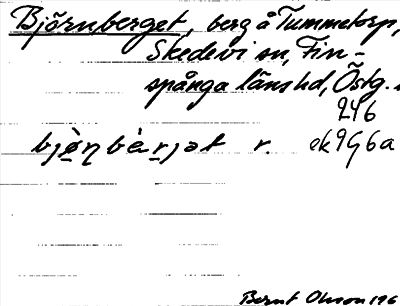 Björnberget, berg å Tummetorp,
Skedevi sn, Fin-
spånga länshd, Östg.
246
bjö̀ṇbæ̀rjət r. ek 9G6a
Bernt Olsson 196